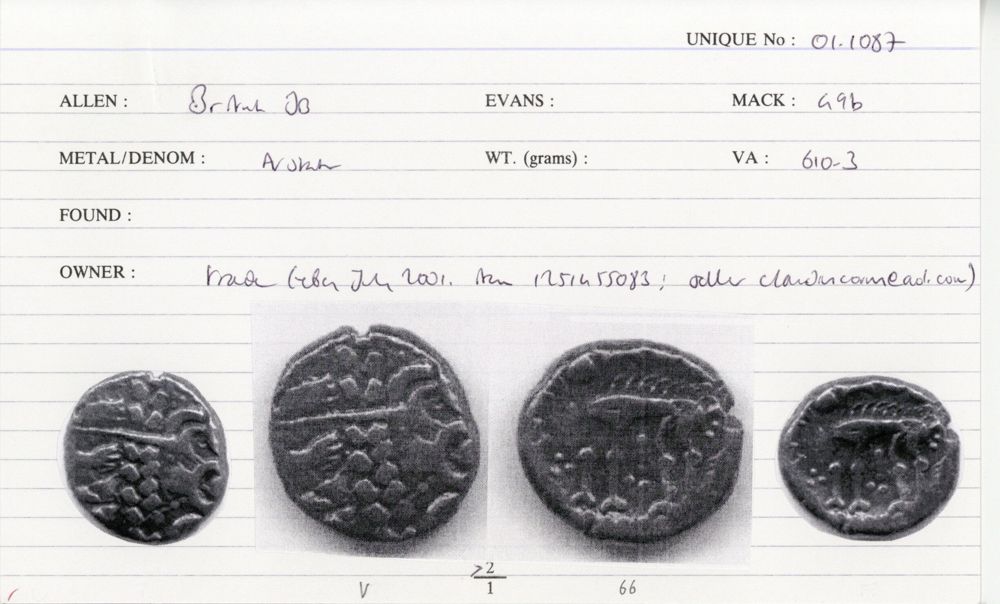 UNIQUE No : 01.1087
ALLEN : British JB EVANS : MACK : 49b
METAL/DENOM : AV stater WT. (grams) : VA : 610-3
FOUND :
OWNER : trade (eBay July 2001. Item 1251455083; seller
>2
V 1 66